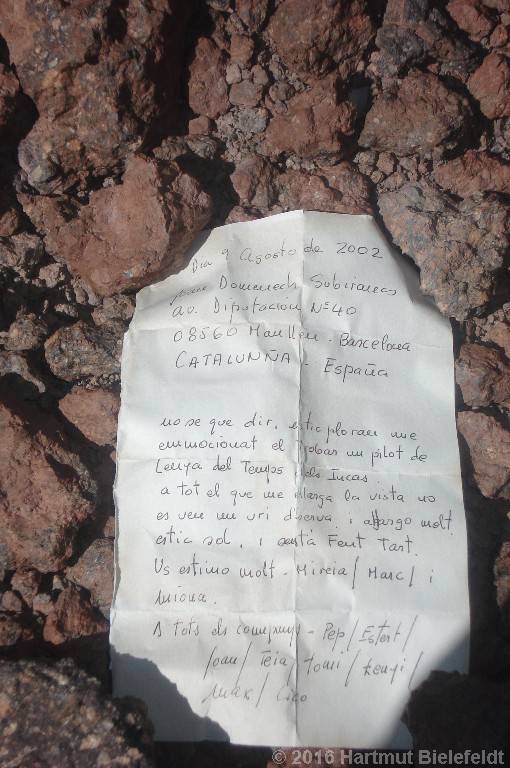 Dia 9 Agosto de 2002
Domenech Subiranes
av. Diputación Nº 40
08560 Manlleu - Barcelona
CATALUNÑA - España
no se que dir, estic ploran me
emmocionat el trobar un pilot de
Lenya del Temps dels Incas
a tot el que me allarga la vista no
es veu un bri d'herva i allargo molt
estic sol, i està Fent Tart.
Us estimo molt - Mireia / Marc / i
A tots els companys - Pep / Estert /
Joan / Teia / Toni / Kenji /
Max / Cico
© 2016 Hartmut Bielefeldt